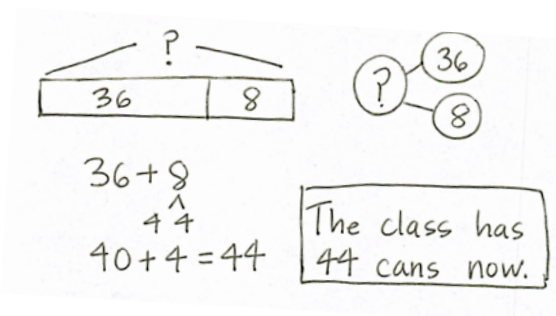 ?
36 8
? 36
8
36 + 8
4 4
40 + 4 = 44
The class has
44 cans now.